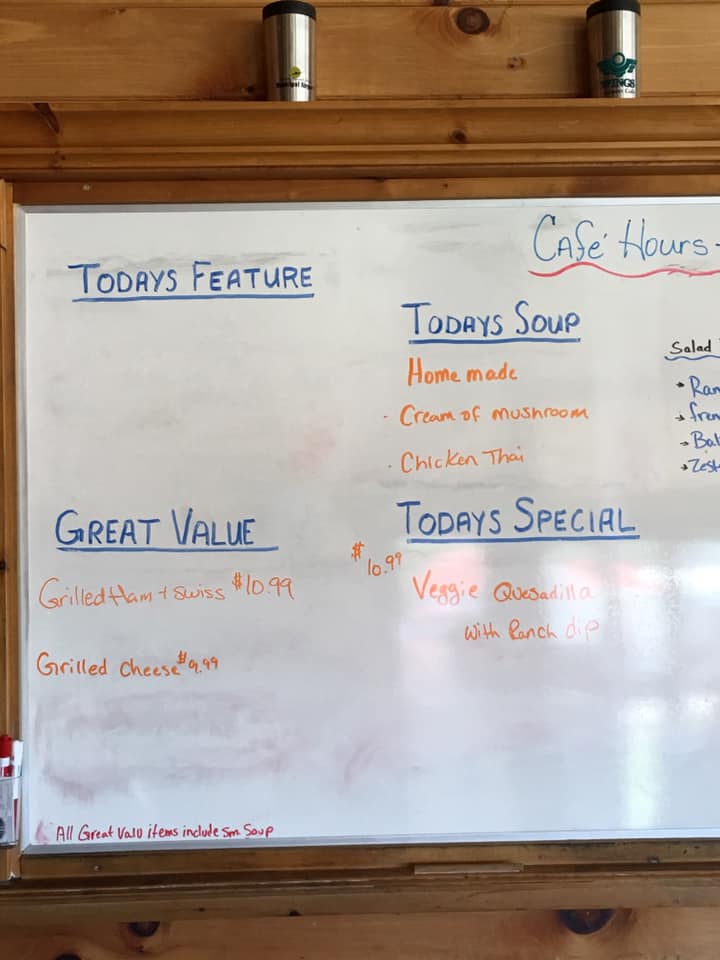 WINGS
CAFé HOURS-
TODAYS FEATURE
TODAYS SOUP
Home made
- Cream of mushroom
- Chicken Thai
Salad
GREAT VALUE
Grilled Ham + Swiss $10.99
Grilled Cheese $9.99
TODAYS SPECIAL
$10.99
Veggie Quesadilla
With Ranch dip
All Great Valu items include sm Soup